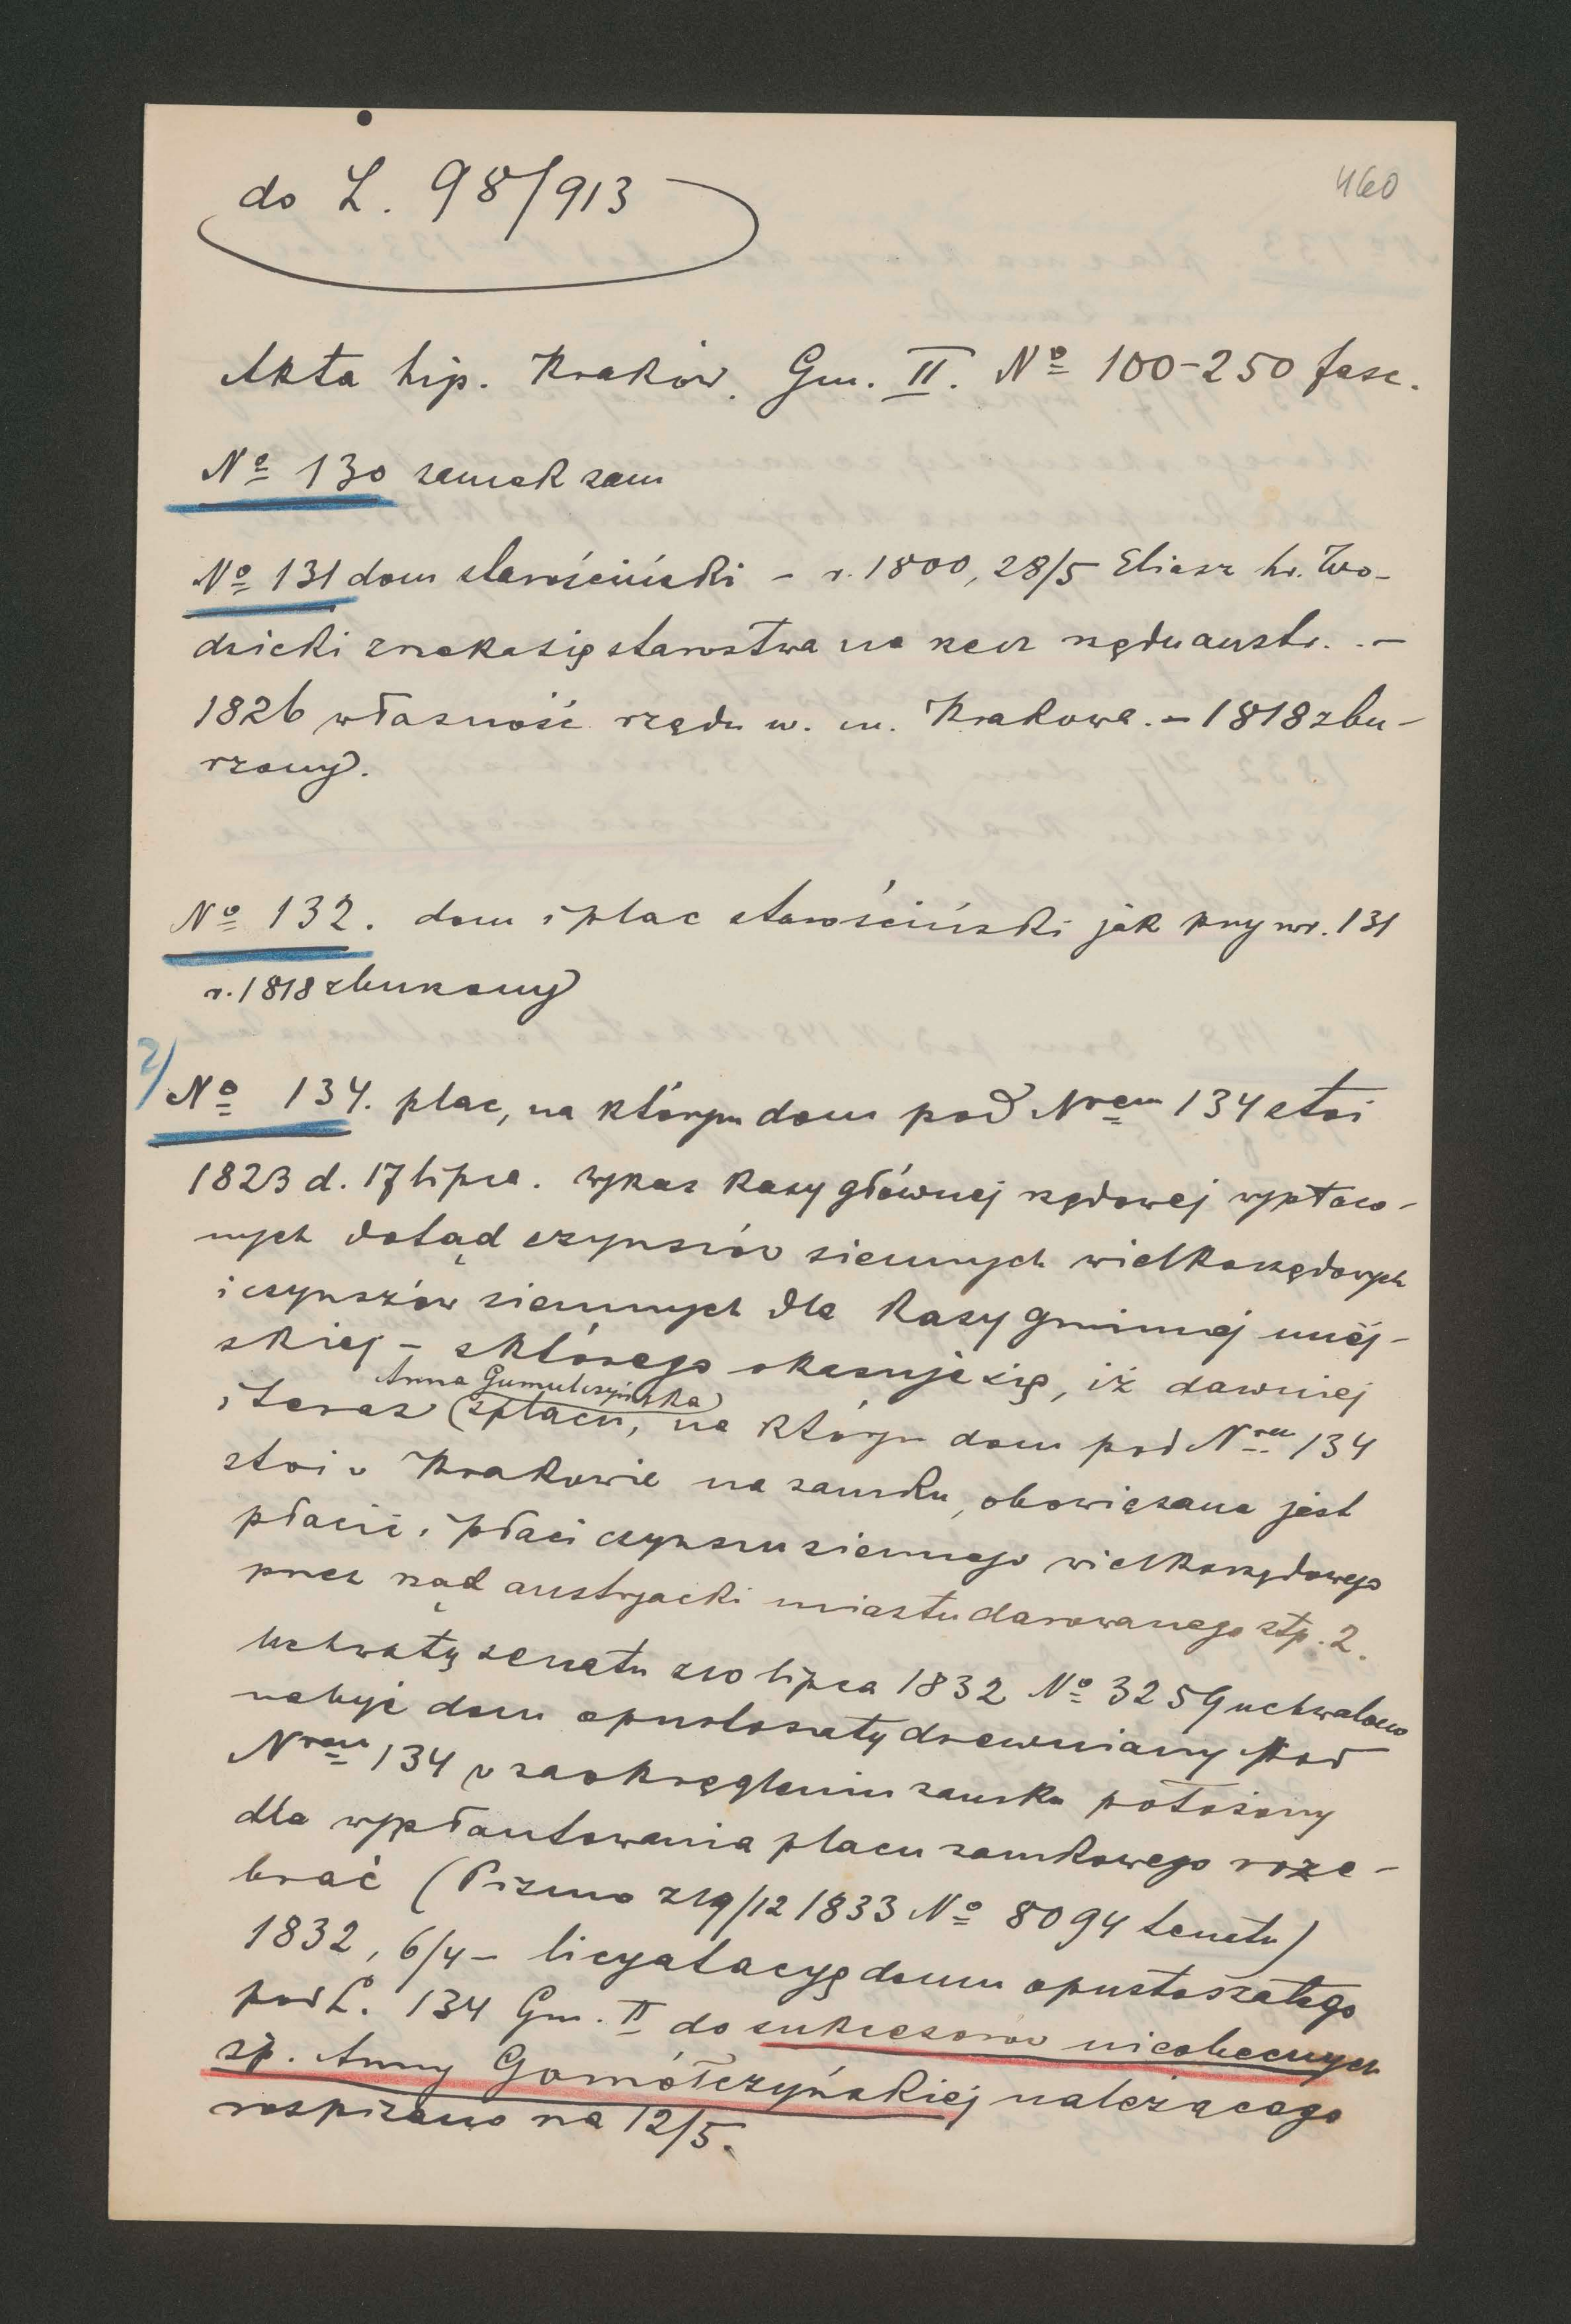 do L. 98/913
460
Akta hip. Kraków. Gm. II. Nº 100-250 fasc.
Nº 130 zamek sam
Nº 131 dom starościński – r. 1800, 28/5 Eliasz hr. Wo-
dzicki zrzeka się starostwa na rzecz rządu austr. . –
1826 własność rządu w. m. Krakowa. – 1818 zbu-
rzony.
Nº 132. dom i plac starościński jak przy nr. 131
r. 1818 zburzony
2/ Nº 134. plac, na którym dom pod Nrem 134 stoi
1823 d. 17 lipca. wykaz kasy głównej rządowej wypłaco-
nych dotąd czynszów ziemnych wielkorządowych
i czynszów ziemnych dla kasy gminnej miej-
skiej – z którego okazuje się, iż dawniej
Anna Gumulczyńska
i teraz (z placu, na którym dom pod Nrem 134
stoi w Krakowie na zamku, obowiązana jest
płacić i płaci czynszu ziemnego wielkorządowego
przez rząd austryacki miastu darowanego złp. 2.
Uchwałą senatu z 10 lipca 1832 Nº 3259 uchwalono
nabyć dom opustoszały drewniany pod
Nrem 134 w zaokrągleniu zamku położony
dla wyplantowania placu zamkowego roze-
brać (Pismo z 19/12 1833 Nº 8094 Senatu)
1832, 6/4 – licytatacyę domu opustoszałego
pod L. 134 Gm. II do sukcesorów nieobecnych
śp. Anny Gomółczyńskiej należącego
rozpisano na 12/5.